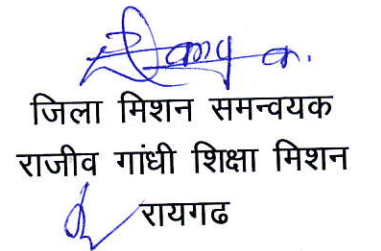 जिला मिशन समन्वयक
राजीव गांधी शिक्षा मिशन
रायगढ